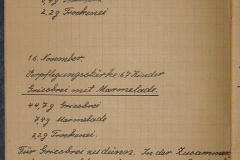 2,2g Trockenei
16. November.
Verpflegungsstärke: 67 Kinder
Griesbrei mit Marmelade.
44,7g Griesbrei
7,4g Marmelade
2,2g Trockenei
Für Griesbrei zu dünn. In der Zusammen